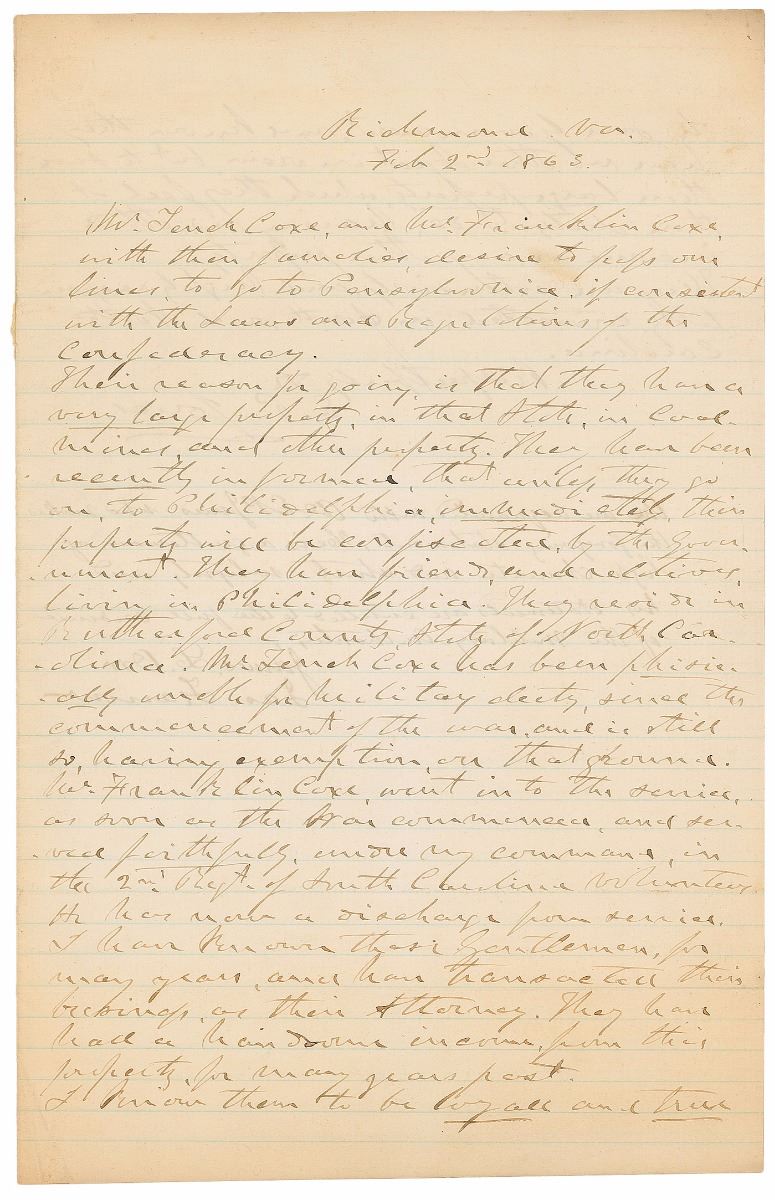 Richmond. Va.
Feb 2nd 1863.
Mr. Tench Coxe, and Mr. Franklin Coxe,
with their families, desire to pass our
lines, to go to Pensylvania, if consistent
with the Laws and Regulations of the
Confederacy.
Their reason for going, is that they have a
very large property, in that State, in Coal-
mines, and other property. They have been
recently informed, that unless they go
on, to Philidelphia, immediately, their
property will be confiscated, by the Gover-
-nment. They have friends, and relatives,
living in Philidelphia. They reside in
Rutherford County, State of North Car-
-olina. Mr. Tench Coxe has been phisic-
-ally unable for Military duty, since the
commencement of the war, and is still
so, having exemption, on that ground.
Mr. Franklin Coxe, went in to the service,
as soon as the War commenced, and ser-
-ved faithfully, under my command, in
the 2nd Regt. of South Carolina Volunteers.
He has now a discharge from service.
I have known these Gentlemen, for
many years, and have transacted their
business, as their Attorney. They have
had a handsome income, from this
property, for many years past.
I know them to be loyall and true